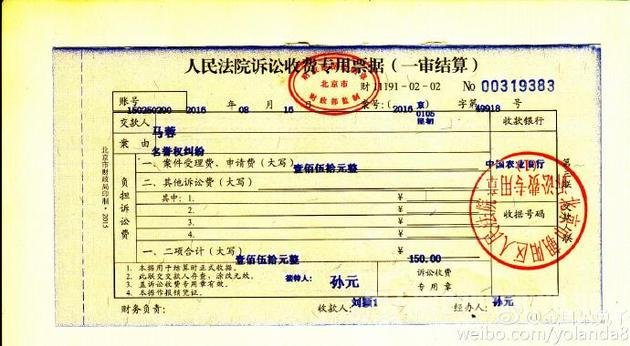 人民法院诉讼收费专用票据（一审结算）
北京市
财政部监制
财 1191-02-02 No 00319383
账号 150250200 2016 年 08 月 16 日 案号:（2016）京0105民初 字第49918 号
交款人 马蓉 收款银行
案由 名誉权纠纷
负担诉讼费
一、案件受理费、申请费（大写） 壹佰伍拾元整 中国农业银行
二、其他诉讼费（大写） ¥
其中：1. ¥
2. ¥ 收据号码
3. ¥
4. ¥
一、二项合计（大写） 壹佰伍拾元整 ¥ 150.00
1. 本据用于结算时正式收据。
2. 此联交交款人存查，涂改无效。
3. 盖诉讼收费专用章有效。
4. 本据作报销凭证。
接待人： 孙元
诉讼收费
专用章
财务负责： 收款人： 刘颖1 经办人： 孙元
北京市财政局印制·2015
北京市朝阳区人民法院
诉讼费专用章
weibo.com/yolanda8